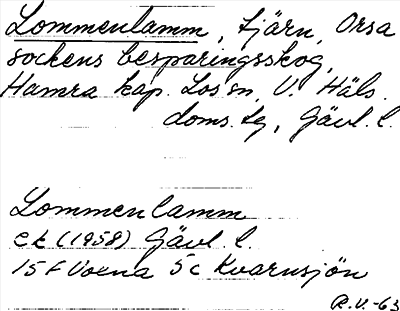 Lommentamm, tjärn, Orsa
sockens besparingsskog,
Hamra kap. Los sn, V. Häls.
doms. tg, Gävl. l.
Lommenlamm
ek (1958) Gävl. l.
15 F Voxna 5c Kvarnsjön
R.V.-63